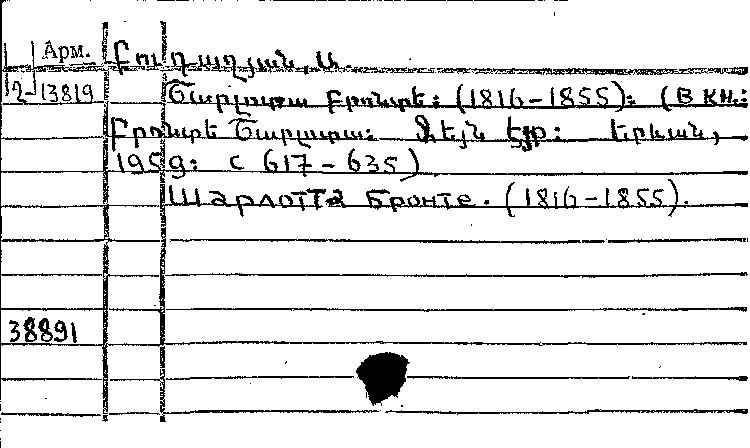 Арм. Բուդաղյան, Ա.
2-13819 Շարլոտտա Բրոնտե: (1816-1855): (В кн.:
Բրոնտե Շարլոտտա: Ջեյն Էյր: Երևան,
1959: С 617-635)
Шарлотта Бронте. (1816-1855).
38891